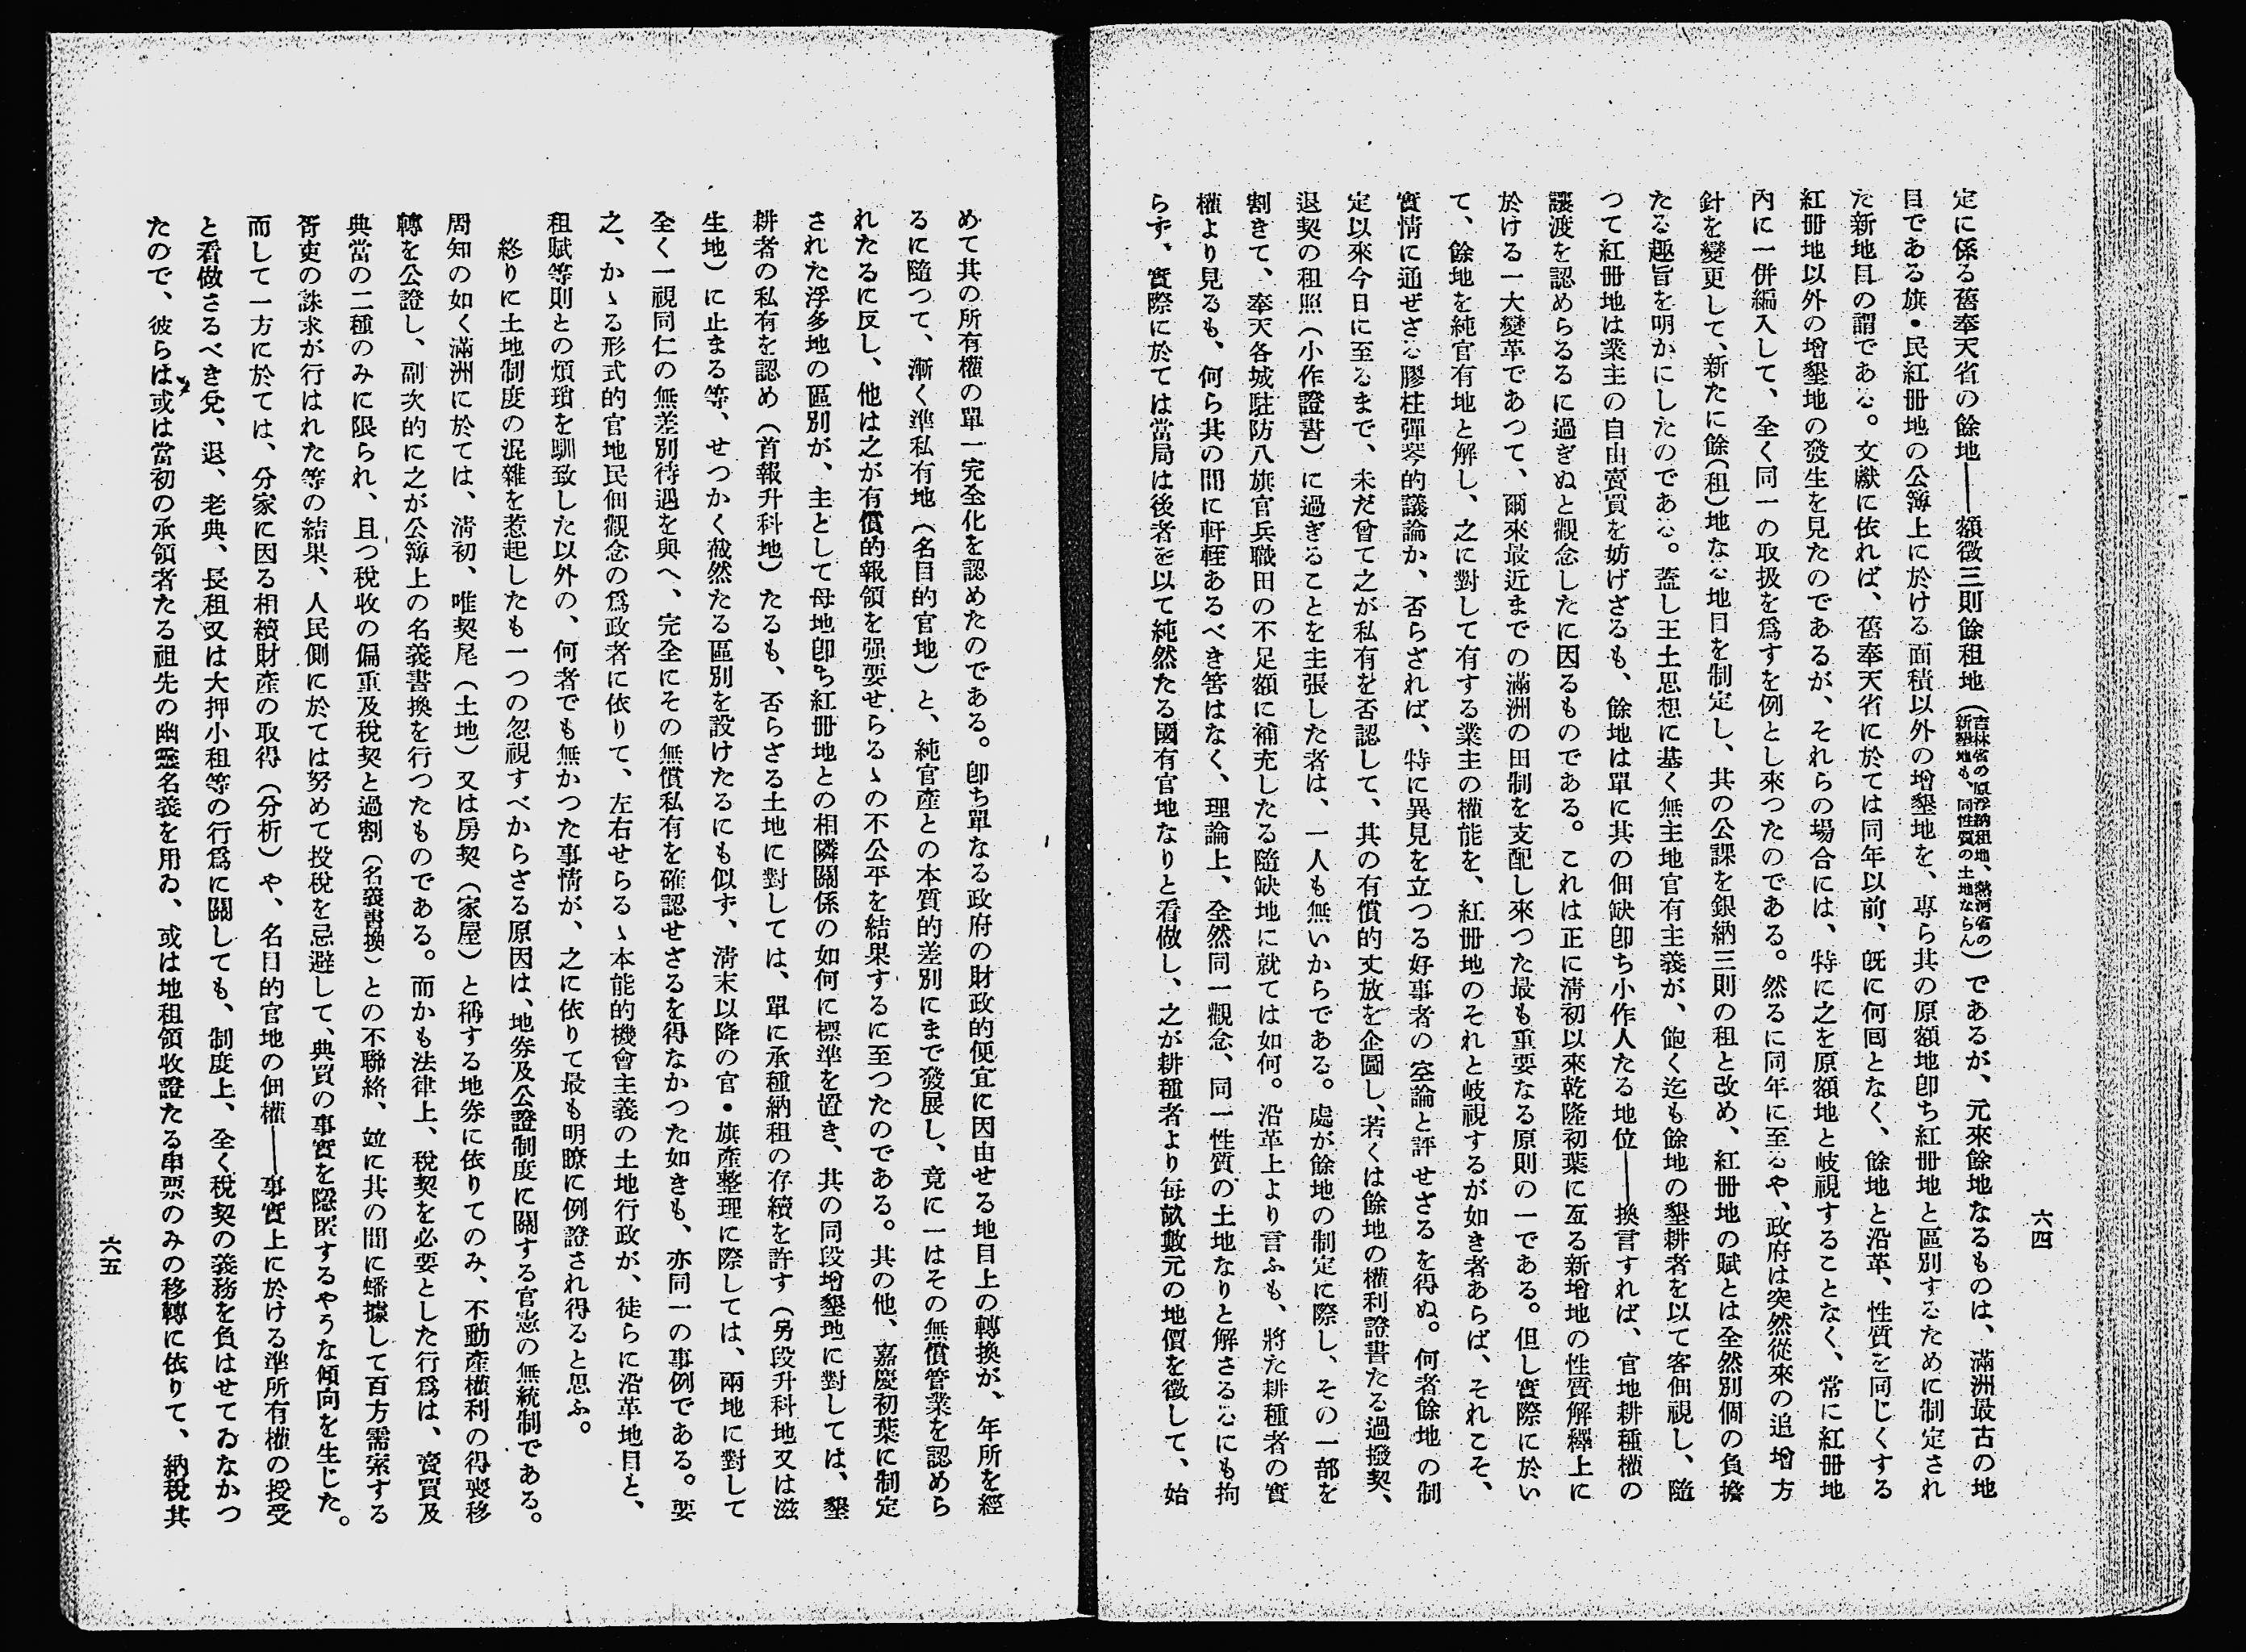 六四
定に係る舊奉天省の餘地――額徵三則餘租地(吉林省の原浮納租地、熱河省の新墾地も、同性質の土地ならん)であるが、元來餘地なるものは、滿洲最古の地
目である旗・民紅冊地の公簿上に於ける面積以外の增墾地を、專ら其の原額地卽ち紅冊地と區別するために制定され
た新地目の謂である。文獻に依れば、舊奉天省に於ては同年以前、旣に何囘となく、餘地と沿革、性質を同じくする
紅冊地以外の增墾地の發生を見たのであるが、それらの場合には、特に之を原額地と岐視することなく、常に紅冊地
內に一併編入して、全く同一の取扱を爲すを例とし來つたのである。然るに同年に至るや、政府は突然從來の追增方
針を變更して、新たに餘(租)地なる地目を制定し、其の公課を銀納三則の租と改め、紅冊地の賦とは全然別個の負擔
たる趣旨を明かにしたのである。蓋し王土思想に基く無主地官有主義が、飽く迄も餘地の墾耕者を以て客佃視し、隨
つて紅冊地は業主の自由賣買を妨げざるも、餘地は單に其の佃缺卽ち小作人たる地位――換言すれば、官地耕種權の
讓渡を認めらるるに過ぎぬと觀念したに因るものである。これは正に淸初以來乾隆初葉に亙る新增地の性質解釋上に
於ける一大變革であつて、爾來最近までの滿洲の田制を支配し來つた最も重要なる原則の一である。但し實際に於い
て、餘地を純官有地と解し、之に對して有する業主の權能を、紅冊地のそれと岐視するが如き者あらば、それこそ、
實情に通ぜざる膠柱彈琴的議論か、否らざれば、特に異見を立つる好事者の空論と評せざるを得ぬ。何者餘地の制
定以來今日に至るまで、未だ曾て之が私有を否認して、其の有償的丈放を企圖し、若くは餘地の權利證書たる過撥契、
退契の租照(小作證書)に過ぎることを主張した者は、一人も無いからである。處が餘地の制定に際し、その一部を
割きて、奉天各城駐防八旗官兵職田の不足額に補充したる隨缺地に就ては如何。沿革上より言ふも、將た耕種者の實
權より見るも、何ら其の間に軒輊あるべき筈はなく、理論上、全然同一觀念、同一性質の土地なりと解さるるにも拘
らず、實際に於ては當局は後者を以て純然たる國有官地なりと看做し、之が耕種者より每畝數元の地價を徵して、始
めて其の所有權の單一完全化を認めたのである。卽ち單なる政府の財政的便宜に因由せる地目上の轉換が、年所を經
るに隨つて、漸く準私有地(名目的官地)と、純官產との本質的差別にまで發展し、竟に一はその無償管業を認めら
れたるに反し、他は之が有償的報領を强要せらるゝの不公平を結果するに至つたのである。其の他、嘉慶初葉に制定
された浮多地の區別が、主として母地卽ち紅冊地との相隣關係の如何に標準を置き、其の同段增墾地に對しては、墾
耕者の私有を認め(首報升科地)たるも、否らざる土地に對しては、單に承種納租の存續を許す(另段升科地又は滋
生地)に止まる等、せつかく截然たる區別を設けたるにも似ず、淸末以降の官・旗產整理に際しては、兩地に對して
全く一視同仁の無差別待遇を與へ、完全にその無償私有を確認せざるを得なかつた如きも、亦同一の事例である。要
之、かゝる形式的官地民佃觀念の爲政者に依りて、左右せらるゝ本能的機會主義の土地行政が、徒らに沿革地目と、
租賦等則との煩瑣を馴致した以外の、何者でも無かつた事情が、之に依りて最も明瞭に例證され得ると思ふ。
終りに土地制度の混雜を惹起したも一つの忽視すべからざる原因は、地券及公證制度に關する官憲の無統制である。
周知の如く滿洲に於ては、淸初、唯契尾(土地)又は房契(家屋)と稱する地券に依りてのみ、不動產權利の得喪移
轉を公證し、副次的に之が公簿上の名義書換を行つたものである。而かも法律上、稅契を必要とした行爲は、賣買及
典當の二種のみに限られ、且つ稅收の偏重及稅契と過割(名義書換)との不聯絡、竝に其の間に蟠據して百方需索する
胥吏の誅求が行はれた等の結果、人民側に於ては努めて投稅を忌避して、典買の事實を隱匿するやうな傾向を生じた。
而して一方に於ては、分家に因る相續財產の取得(分析)や、名目的官地の佃權――事實上に於ける準所有權の授受
と看做さるべき兌、退、老典、長租又は大押小租等の行爲に關しても、制度上、全く稅契の義務を負はせてゐなかつ
たので、彼らは或は當初の承領者たる祖先の幽靈名義を用ゐ、或は地租領收證たる串票のみの移轉に依りて、納稅其
六五